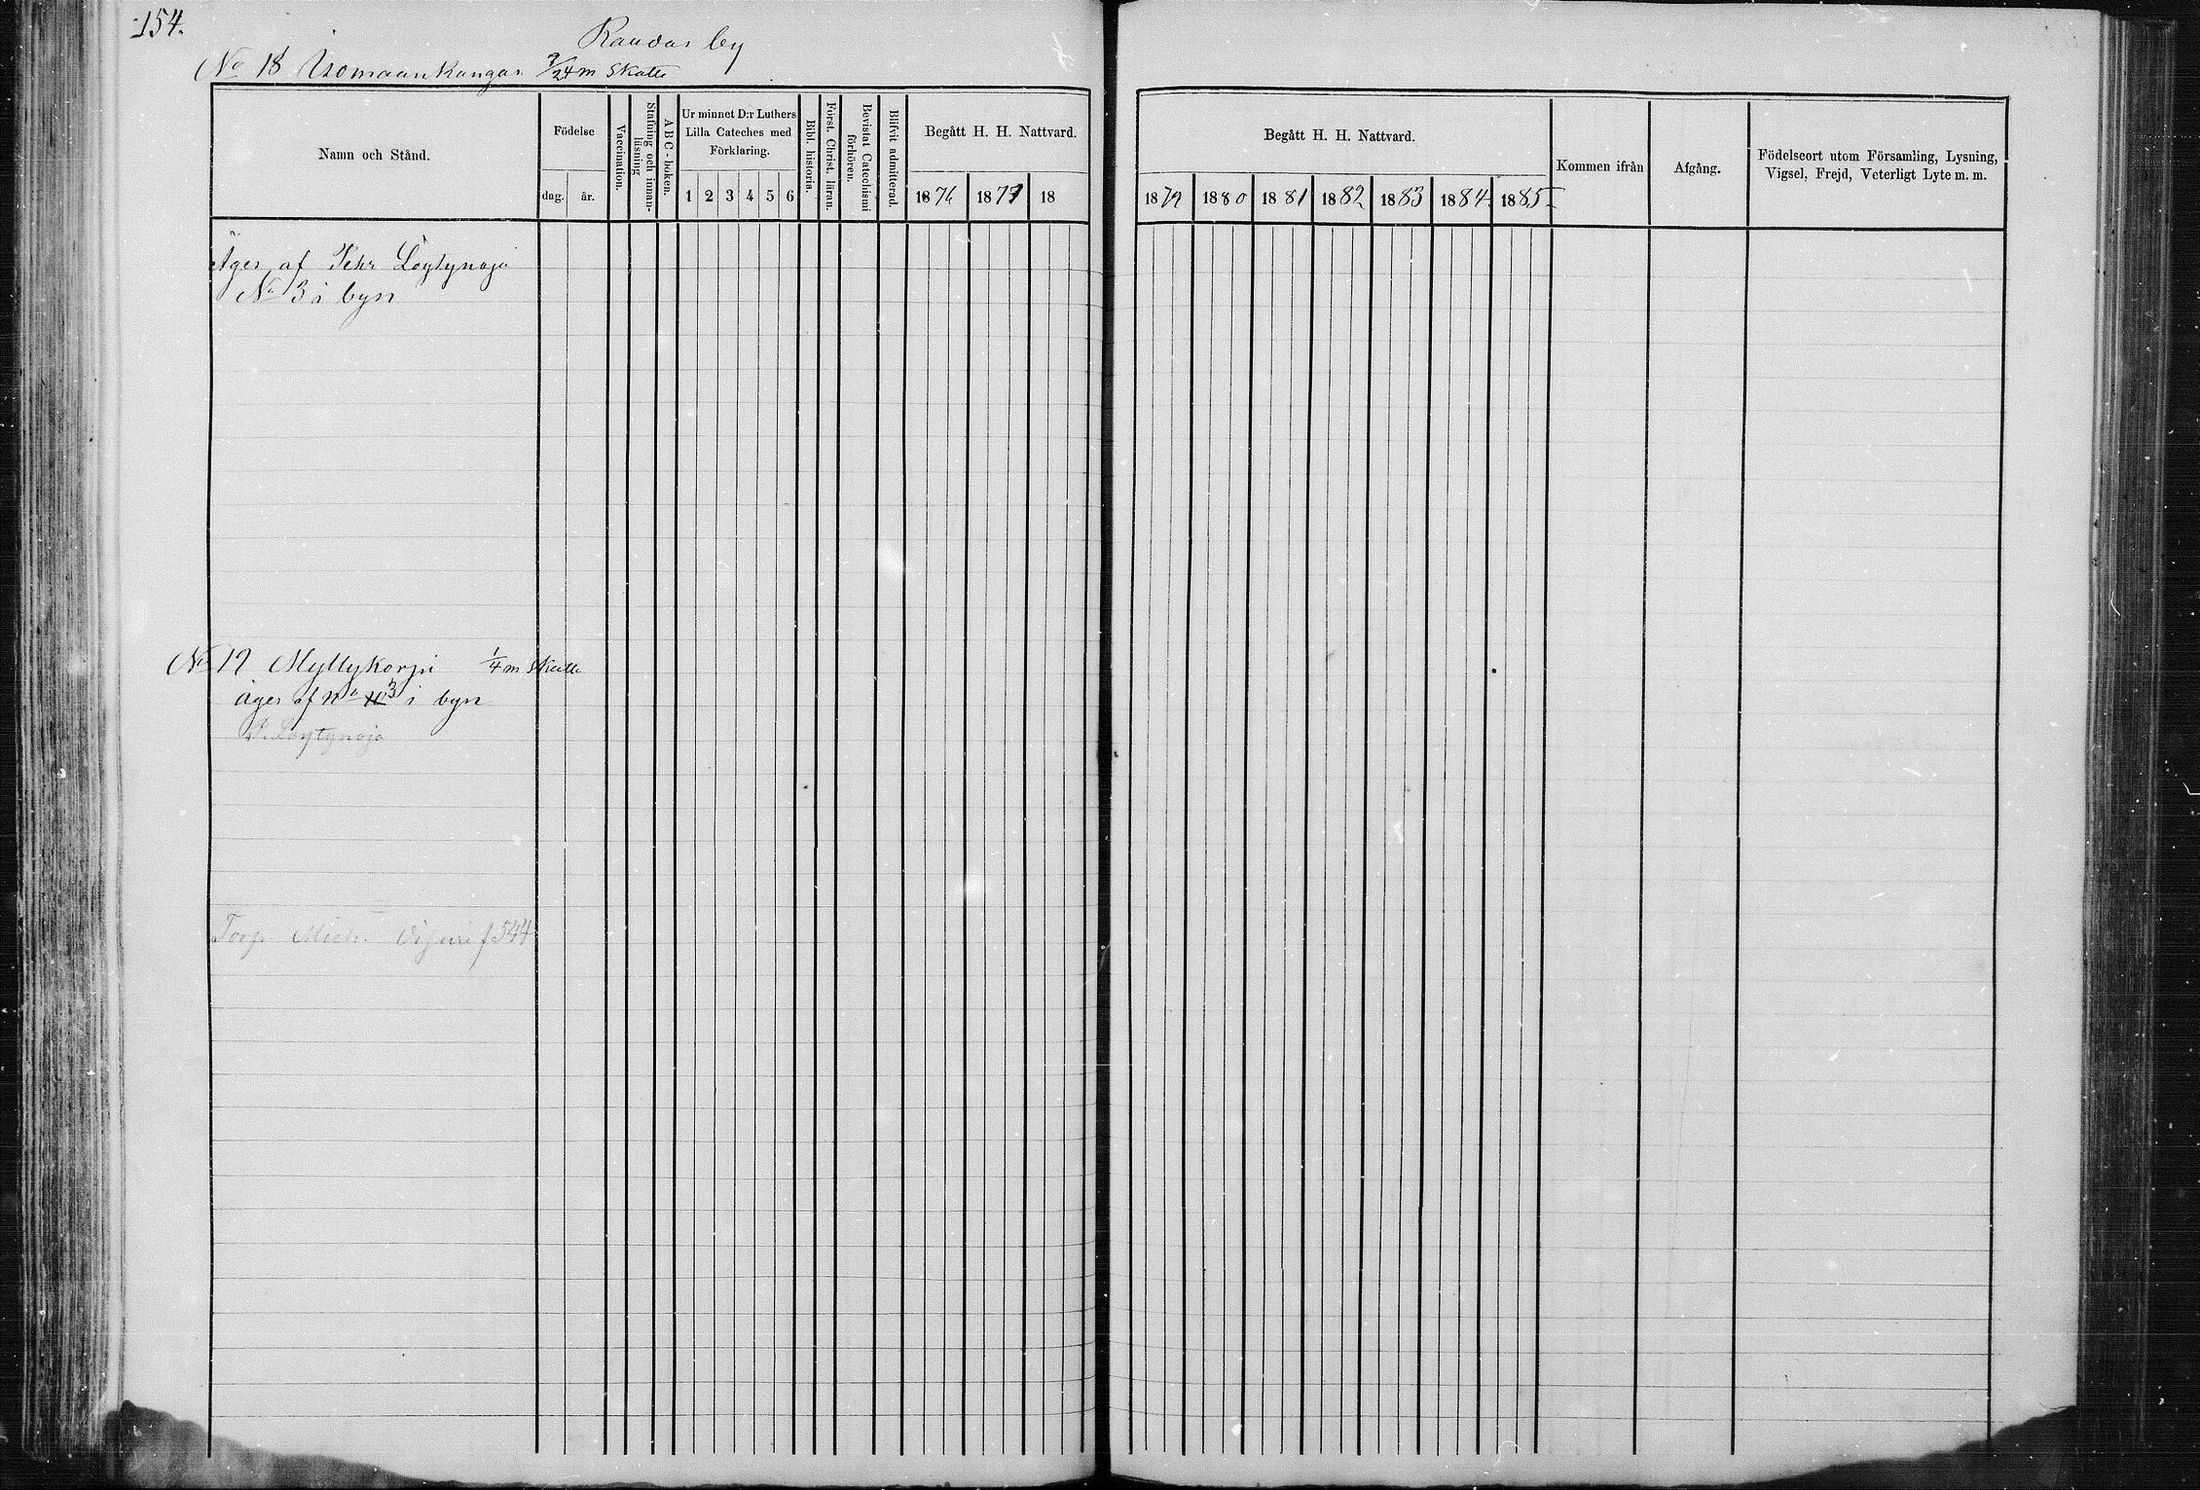 154.
Raudas by
No 18 Isomaankangas 7/24 m skatte
Namn och Stånd.
Födelse
dag. år.
Vaccination.
Stafning och innan-
läsning
ABC-boken.
Ur minnet D:r Luthers
Lilla Cateches med
Förklaring.
1 2 3 4 5 6
Bibl. historia.
Först. Christ. läran.
Bevistat Catechismi
förhören.
Blifvit admitterad.
Begått H. H. Nattvard.
1876 1877 18
Begått H. H. Nattvard.
1879 1880 1881 1882 1883 1884 1885
Kommen ifrån
Afgång.
Födelseort utom Församling, Lysning,
Vigsel, Frejd, Veterligt Lyte m. m.
Äges af Pehr Löytynoja
No 3 i byn
No 19 Myllykorpi 1/4 m skatte
äges af No 3 i byn
Löytynoja
Torp. Mich. f 544